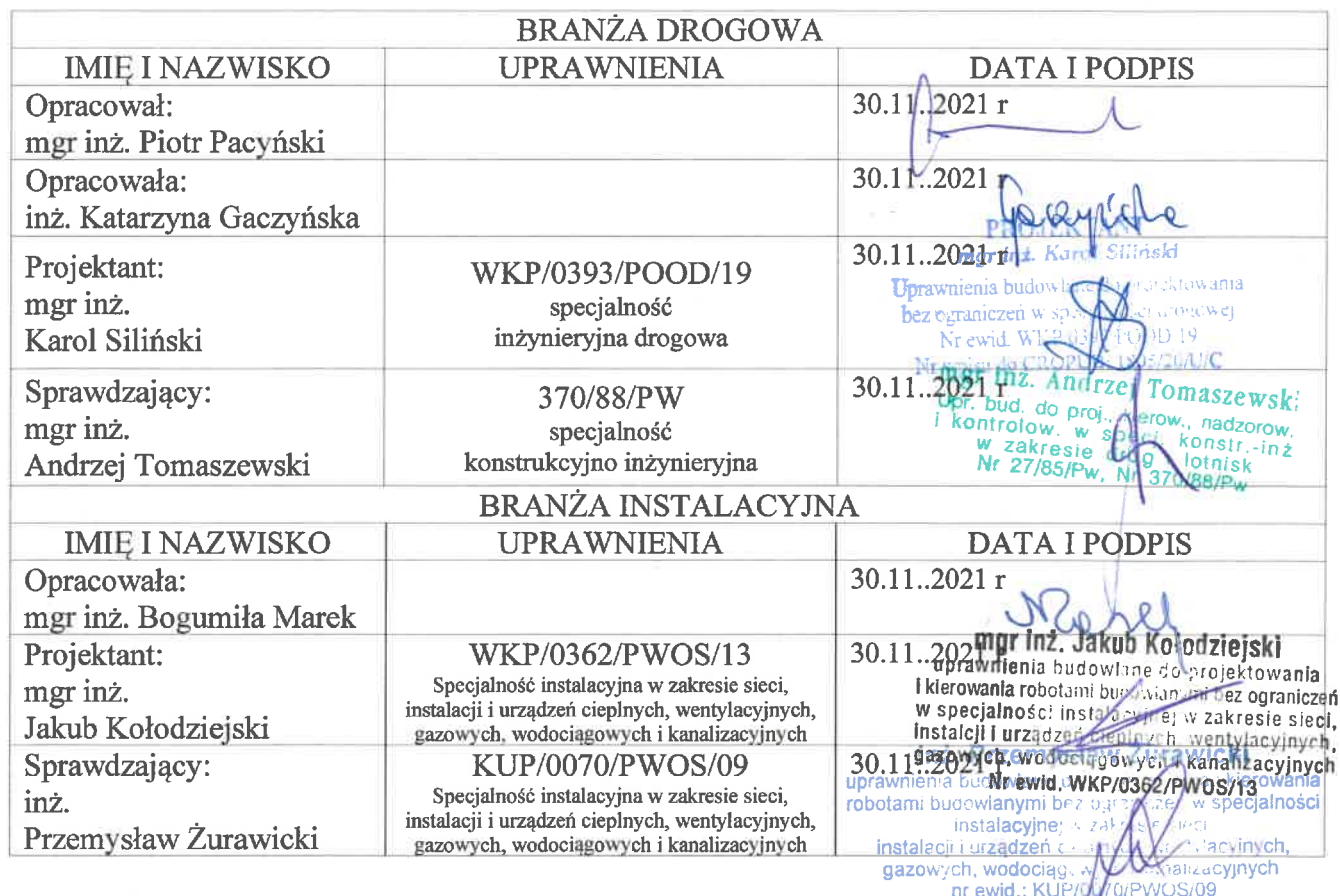 BRANŻA DROGOWA
IMIĘ I NAZWISKO UPRAWNIENIA DATA I PODPIS
Opracował:
mgr inż. Piotr Pacyński
30.11..2021 r
Opracowała:
inż. Katarzyna Gaczyńska
30.11..2021 r
Gaczyńska
Projektant:
mgr inż.
Karol Siliński
WKP/0393/POOD/19
specjalność
inżynieryjna drogowa
30.11..2021 r
mgr inż. Karol Siliński
Uprawnienia budowlane do projektowania
bez ograniczeń w specjalności drogowej
Nr ewid. WKP/0393/POOD/19
Sprawdzający:
mgr inż.
Andrzej Tomaszewski
370/88/PW
specjalność
konstrukcyjno inżynieryjna
30.11..2021 r
mgr inż. Andrzej Tomaszewski
Upr. bud. do proj., kierow., nadzorow.
i kontrolow. w specj. konstr.-inż
w zakresie dróg lotnisk
Nr 27/85/Pw, Nr 370/88/Pw
BRANŻA INSTALACYJNA
IMIĘ I NAZWISKO UPRAWNIENIA DATA I PODPIS
Opracowała:
mgr inż. Bogumiła Marek
30.11..2021 r
Marek
Projektant:
mgr inż.
Jakub Kołodziejski
WKP/0362/PWOS/13
Specjalność instalacyjna w zakresie sieci,
instalacji i urządzeń cieplnych, wentylacyjnych,
gazowych, wodociągowych i kanalizacyjnych
30.11..2021 r
mgr inż. Jakub Kołodziejski
uprawnienia budowlane do projektowania
i kierowania robotami budowlanymi bez ograniczeń
w specjalności instalacyjnej w zakresie sieci,
instalcji i urządzeń cieplnych, wentylacyjnych,
gazowych, wodociągowych i kanalizacyjnych
Nr ewid. WKP/0362/PWOS/13
Sprawdzający:
inż.
Przemysław Żurawicki
KUP/0070/PWOS/09
Specjalność instalacyjna w zakresie sieci,
instalacji i urządzeń cieplnych, wentylacyjnych,
gazowych, wodociągowych i kanalizacyjnych
30.11..2021 r
inż. Przemysław Żurawicki
uprawnienia kierowania
robotami budowlanymi bez ograniczeń w specjalności
instalacyjnej w zakresie sieci
instalacji i urządzeń wentylacyjnych,
gazowych, wodociąg. kanalizacyjnych
nr ewid.: KUP/0070/PWOS/09